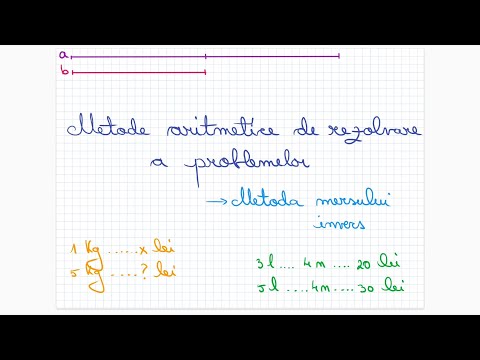 a
b
Metode aritmetice de rezolvare
a problemelor
→ Metoda mersului
invers
1 Kg ..... x lei
5 Kg .... ? lei
3 l .... 4 m .... 20 lei
5 l .... 4 m .... 30 lei